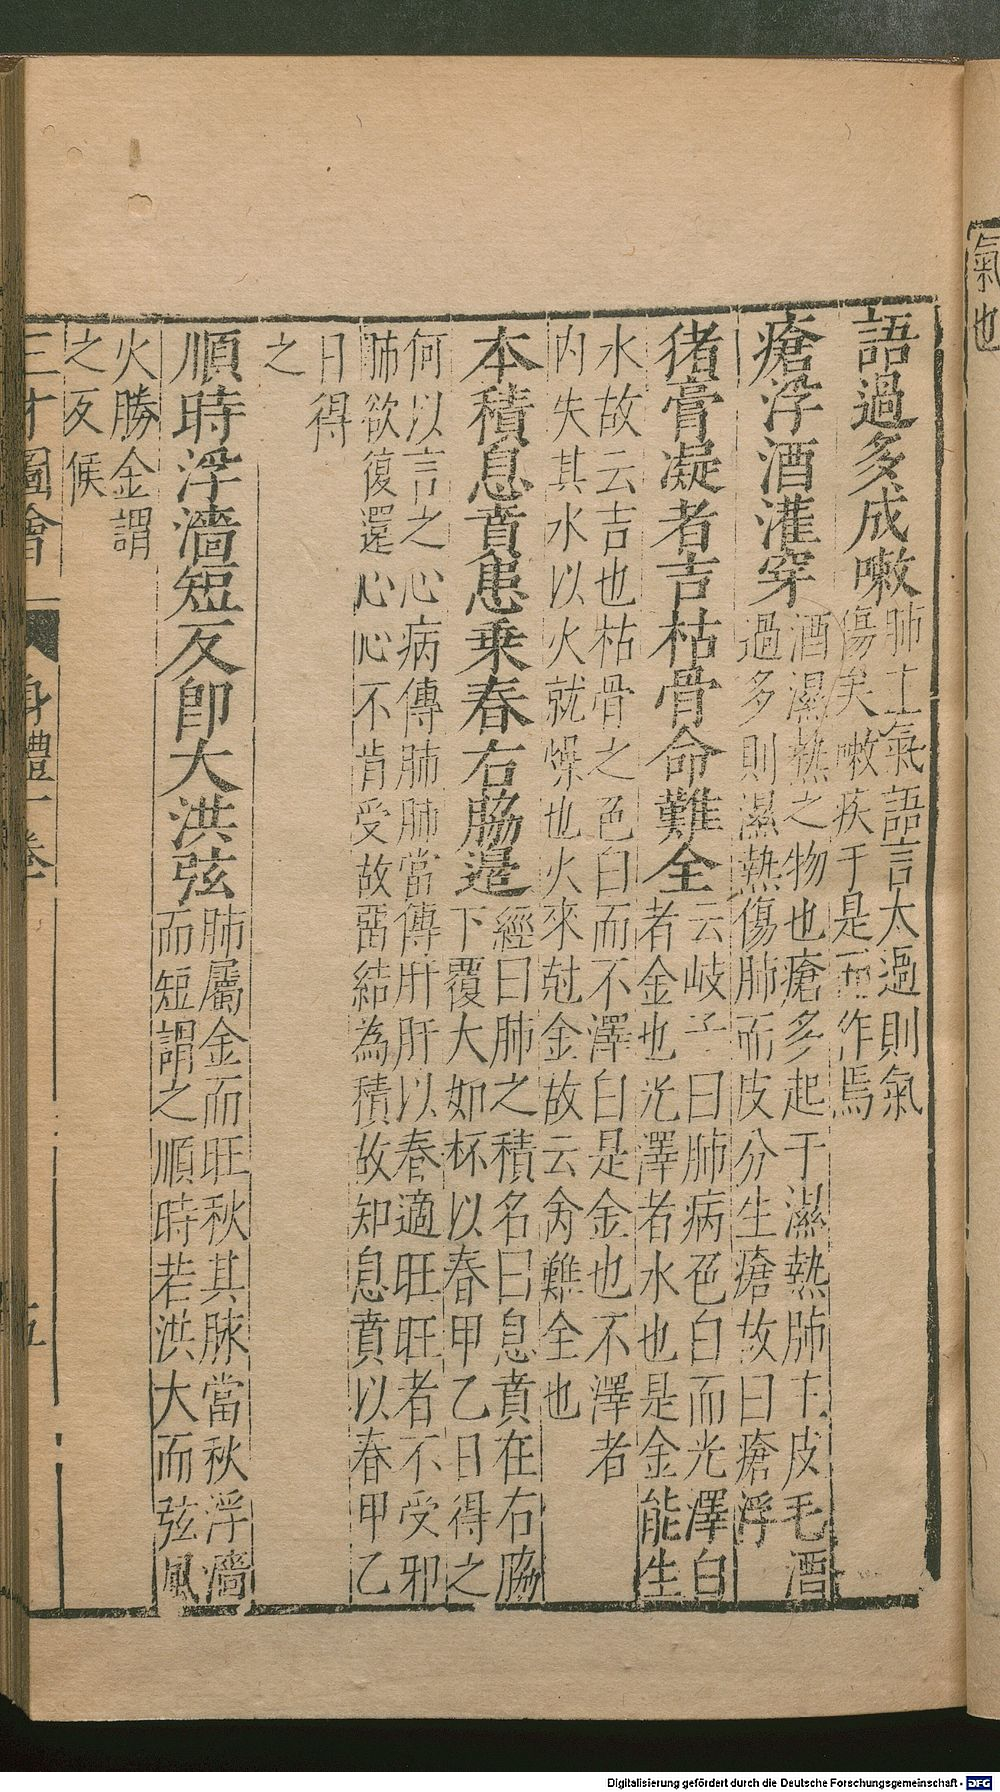 氣也
語過多成嗽
肺主氣語言太過則氣
傷矣嗽疾于是而作焉
瘡浮酒灌穿
酒濕熱之物也瘡多起于濕熱肺主皮毛酒
過多則濕熱傷肺而皮分生瘡故曰瘡浮
猪膏凝者吉枯骨命難全
云岐子曰肺病色白而光澤白
者金也光澤者水也是金能生
水故云吉也枯骨之色白而不澤白是金也不澤者
内失其水以火就燥也火來尅金故云命難全也
本積息賁患乗春右脇邉
經曰肺之積名曰息賁在右脇
下覆大如杯以春甲乙日得之
何以言之心病傳肺肺當傳肝肝以春適旺旺者不受邪
肺欲復還心心不肯受故畱結為積故知息賁以春甲乙
日得
之
順時浮濇短反卽大洪弦
肺屬金而旺秋其脉當秋浮濇
而短謂之順時若洪大而弦風
火勝金謂
之反候
三才圖會
身體一卷
五
Digitalisierung gefördert durch die Deutsche Forschungsgemeinschaft - DFG